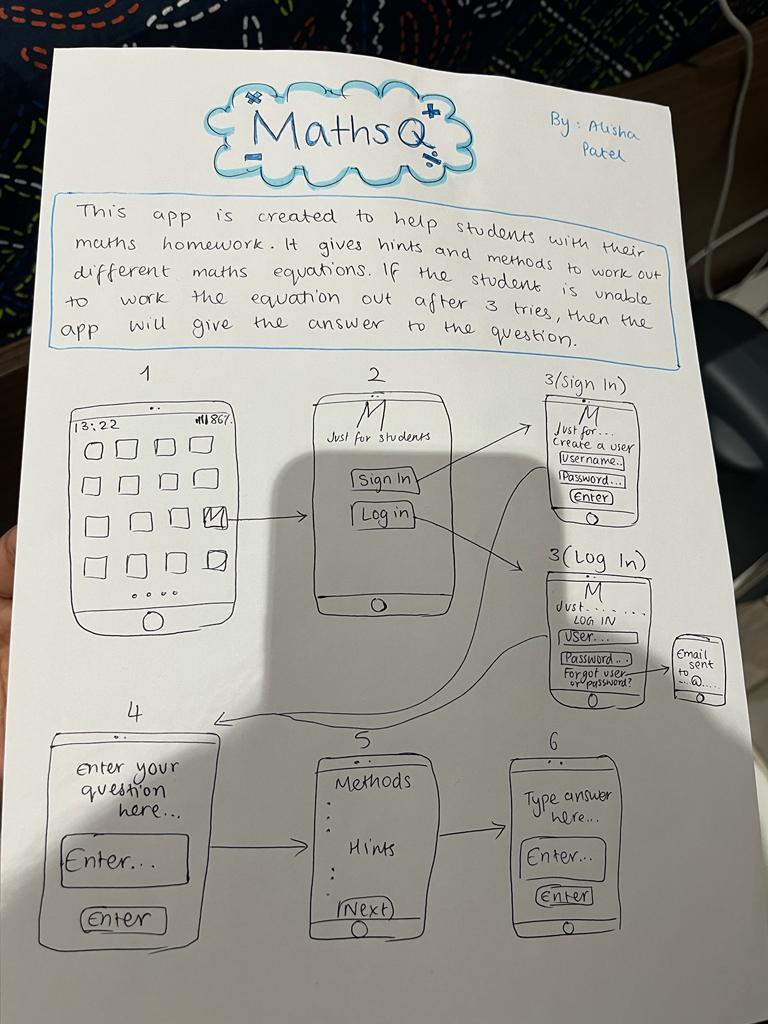 MathsQ
By: Alisha
Patel
This app is created to help students with their
maths homework. It gives hints and methods to work out
different maths equations. If the student is unable
to work the equation out after 3 tries, then the
app will give the answer to the question.
1
13:22
86%
M
2
M
Just for students
Sign In
Log in
3(Sign In)
M
Just for...
Create a user
Username..
Password...
Enter
3(Log In)
M
Just........
LOG IN
User...
Password...
Forgot user
or password?
Email
sent
to
...@.....
4
Enter your
question
here...
Enter...
Enter
5
Methods
Hints
Next
6
Type answer
here...
Enter...
Enter